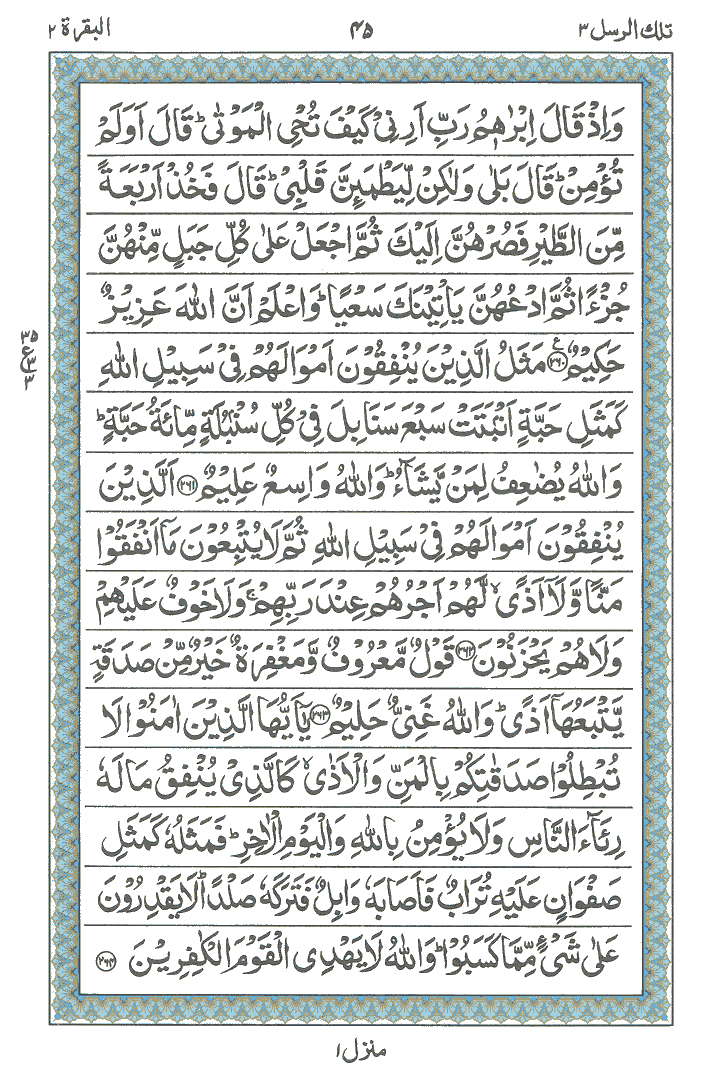 تلك الرسل ٣
٤٥
البقرة ٢
وَاِذْ قَالَ اِبْرٰهٖمُ رَبِّ اَرِنِیْ كَیْفَ تُحْیِ الْمَوْتٰی ؕ قَالَ اَوَلَمْ
تُؤْمِنْ ؕ قَالَ بَلٰی وَلٰكِنْ لِّیَطْمَىِٕنَّ قَلْبِیْ ؕ قَالَ فَخُذْ اَرْبَعَةً
مِّنَ الطَّیْرِ فَصُرْهُنَّ اِلَیْكَ ثُمَّ اجْعَلْ عَلٰی كُلِّ جَبَلٍ مِّنْهُنَّ
جُزْءًا ثُمَّ ادْعُهُنَّ یَاْتِیْنَكَ سَعْیًا ؕ وَاعْلَمْ اَنَّ اللّٰهَ عَزِیْزٌ
حَكِیْمٌ ۧ ﴿۲۶۰﴾ مَثَلُ الَّذِیْنَ یُنْفِقُوْنَ اَمْوَالَهُمْ فِیْ سَبِیْلِ اللّٰهِ
كَمَثَلِ حَبَّةٍ اَنْۢبَتَتْ سَبْعَ سَنَابِلَ فِیْ كُلِّ سُنْۢبُلَةٍ مِّائَةُ حَبَّةٍ ؕ
وَاللّٰهُ یُضٰعِفُ لِمَنْ یَّشَآءُ ؕ وَاللّٰهُ وَاسِعٌ عَلِیْمٌ ﴿۲۶۱﴾ اَلَّذِیْنَ
یُنْفِقُوْنَ اَمْوَالَهُمْ فِیْ سَبِیْلِ اللّٰهِ ثُمَّ لَا یُتْبِعُوْنَ مَاۤ اَنْفَقُوْا
مَنًّا وَّلَاۤ اَذًی ۙ لَّهُمْ اَجْرُهُمْ عِنْدَ رَبِّهِمْ ۚ وَلَا خَوْفٌ عَلَیْهِمْ
وَلَا هُمْ یَحْزَنُوْنَ ﴿۲۶۲﴾ قَوْلٌ مَّعْرُوْفٌ وَّمَغْفِرَةٌ خَیْرٌ مِّنْ صَدَقَةٍ
یَّتْبَعُهَاۤ اَذًی ؕ وَاللّٰهُ غَنِیٌّ حَلِیْمٌ ﴿۲۶۳﴾ یٰۤاَیُّهَا الَّذِیْنَ اٰمَنُوْا لَا
تُبْطِلُوْا صَدَقٰتِكُمْ بِالْمَنِّ وَالْاَذٰی ۙ كَالَّذِیْ یُنْفِقُ مَالَهٗ
رِئَآءَ النَّاسِ وَلَا یُؤْمِنُ بِاللّٰهِ وَالْیَوْمِ الْاٰخِرِ ؕ فَمَثَلُهٗ كَمَثَلِ
صَفْوَانٍ عَلَیْهِ تُرَابٌ فَاَصَابَهٗ وَابِلٌ فَتَرَكَهٗ صَلْدًا ؕ لَا یَقْدِرُوْنَ
عَلٰی شَیْءٍ مِّمَّا كَسَبُوْا ؕ وَاللّٰهُ لَا یَهْدِی الْقَوْمَ الْكٰفِرِیْنَ ﴿۲۶۴﴾
۳۵
ع
۳
۳
منزل ١